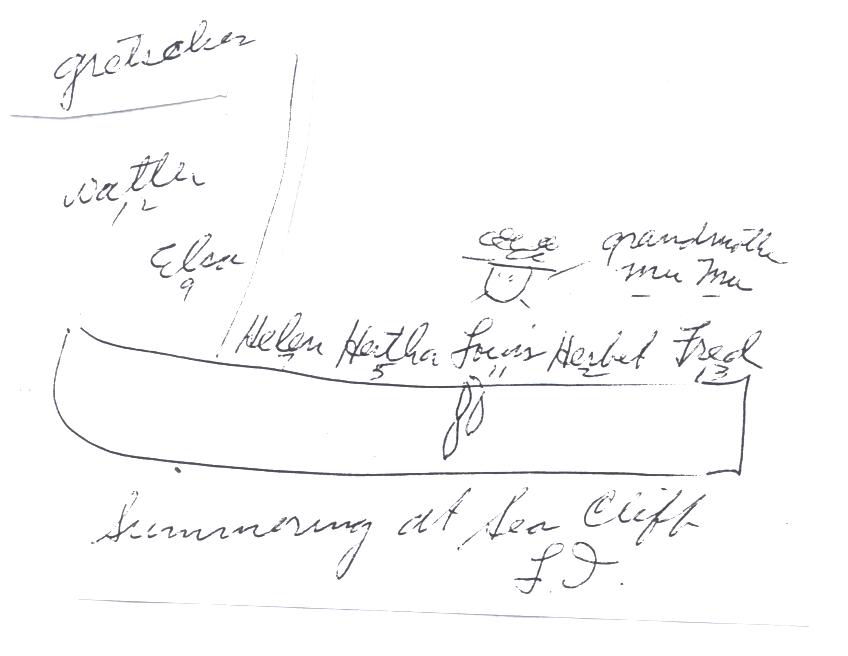 gretchen
Walter
12
Elsa
9
grandmother
Mu Mu
Helen Hertha Louis Herbert Fred
7 5 11 2 13
Summering at Sea Cliff
L.I.